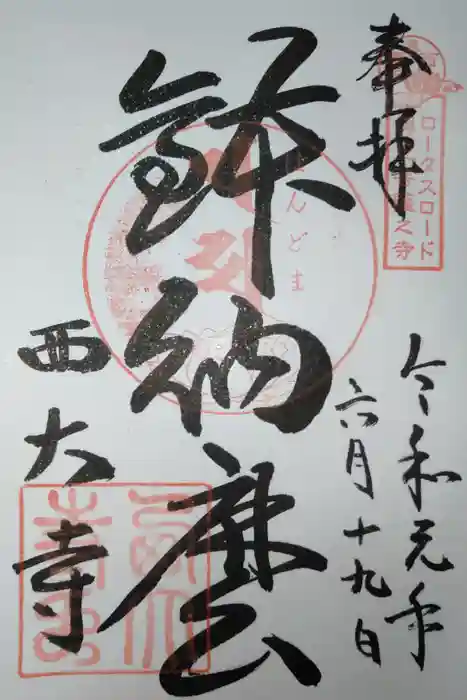 奉拝
ロータスロード
令和元年
六月十九日
鉢納麿
西大寺